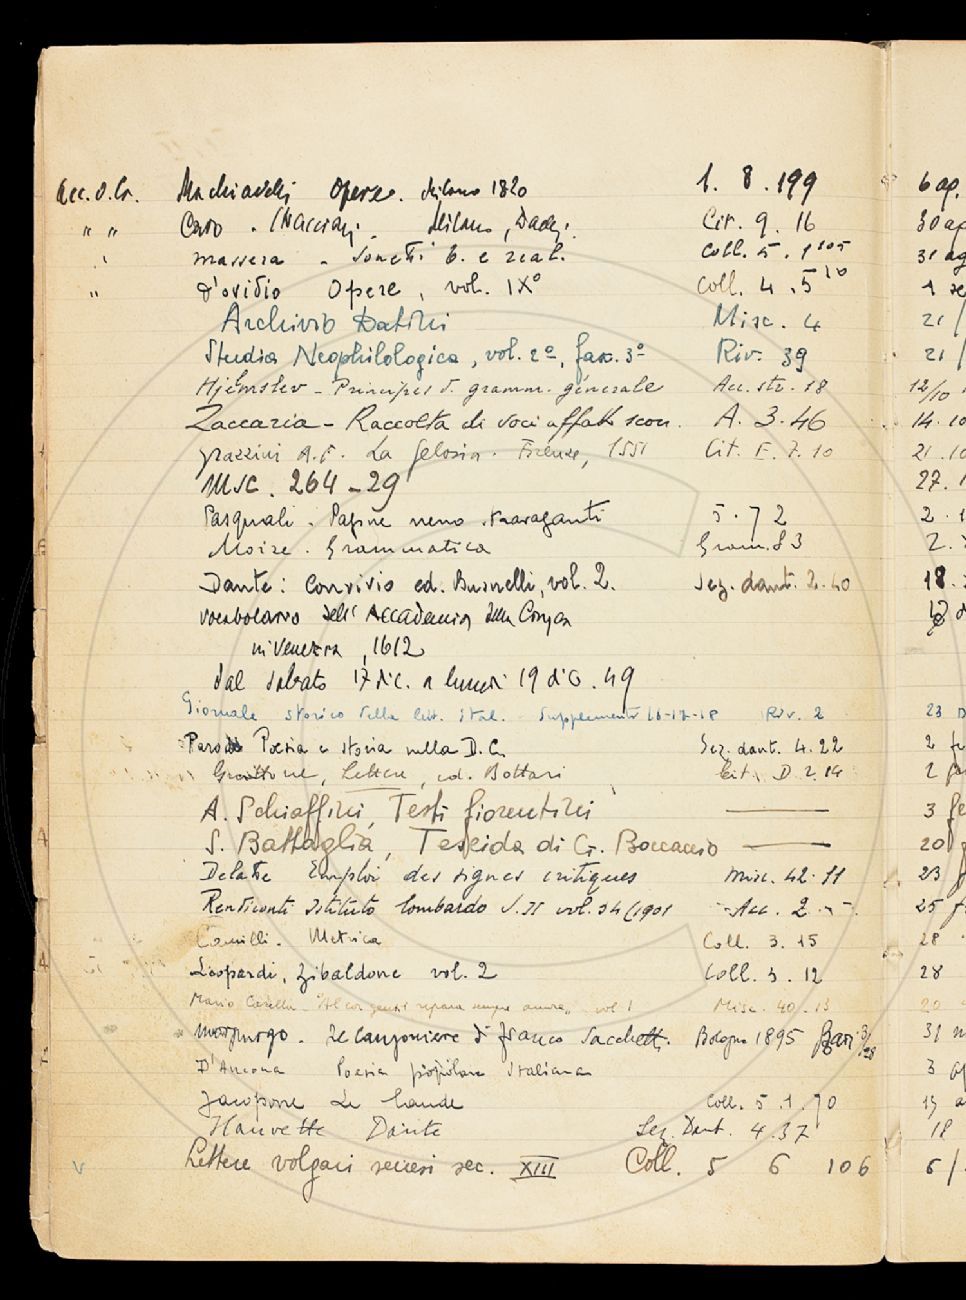 Acc. d. Cr. Machiavelli Opere. Milano 1820 1. 8. 199 6 ap.
" " Caro. Milano, Cit. 9. 16 30 ag
" Massera - Sonetti b. e real. Coll. 5. 1 105 31 ag
" D'Ovidio Opere, vol. IXº Coll. 4. 5 10 1 se
Archivio Datini Misc. 4 21 /
Studia Neophilologica, vol. 2º, fasc. 3º Riv. 39 21 /
Hjelmslev - Principes d. gramm. générale Acc. str. 18 12/10
Zaccaria - Raccolta di voci affatto scon. A. 3. 46 14. 10
Grazzini A.F. La Gelosia. Firenze, 1551 Cit. E. 7. 10 21. 10
MSC. 264-29 27. 1
Pasquali. Pagine meno stravaganti 5. 72 2. 1
Moise. Grammatica Gram. 83 2.
Dante: Convivio ed. Busnelli, vol. 2. Sez. dant. 2. 40 18.
Vocabolario dell'Accademia della Crusca
in Venezia, 1612
Dal sabato 17 dic. a lunedì 19 dic. 49
Giornale storico della lett. ital. Supplemento 16-17-18 Riv. 2 23
Parodi Poesia e storia nella D.C. Sez. dant. 4. 22 2 fe
Guittone, Lettere, ed. Bottari Cit. D. 2. 14 2
A. Schiaffini, Testi fiorentini 3 fe
S. Battaglia, Teseida di G. Boccaccio 20 f
Delatte Emploi des signes critiques Misc. 42. 11 23 f
Rendiconti Istituto lombardo S. II vol. 34 (1901 Acc. 2 25 f
Camilli. Metrica Coll. 3. 15 28
Leopardi, Zibaldone vol. 2 Coll. 3. 12 28
Mario Casella "Al cor gentil repara sempre amore", vol 1 Misc. 40. 13 20
Morpurgo. Il canzoniere di Franco Sacchetti. Bologna 1895 31 m
D'Ancona Poesia popolare Italiana 3 ap
Jacopone Le Laude Coll. 5. 1. 70 19 a
Hauvette Dante Sez. Dant. 4. 37 18
v Lettere volgari senesi sec. XIII Coll. 5 6 106 6 /